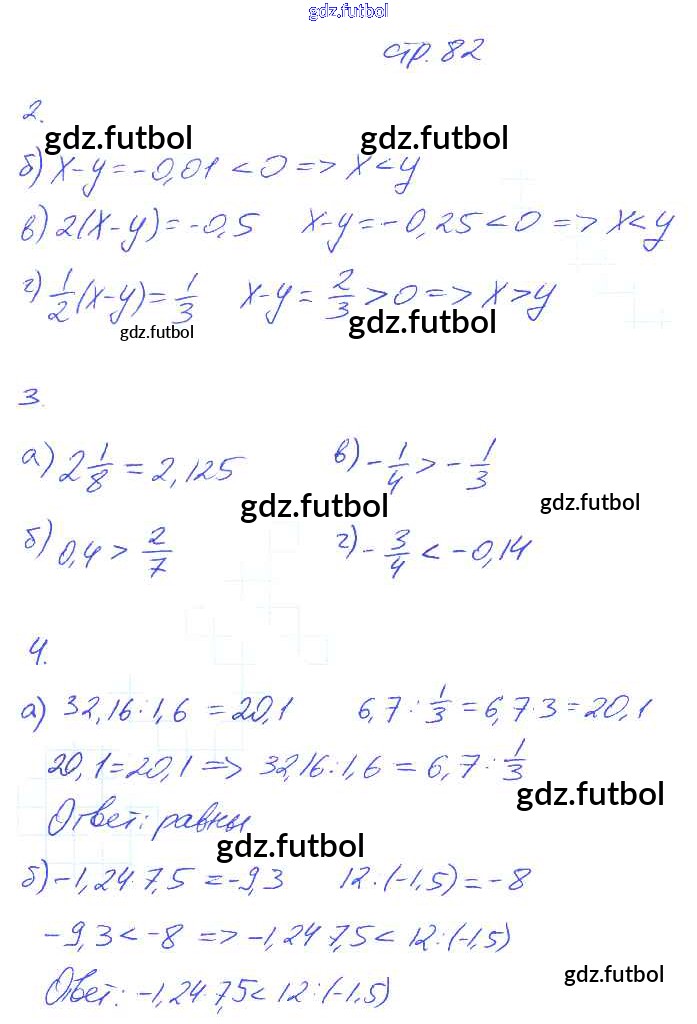 gdz.futbol
стр. 82
2.
gdz.futbol gdz.futbol
б) x-y = -0,01 < 0 => x < y
в) 2(x-y) = -0,5 x-y = -0,25 < 0 => x < y
г) 1/2(x-y) = 1/3 x-y = 2/3 > 0 => x > y
gdz.futbol gdz.futbol
3.
а) 2 1/8 = 2,125 в) -1/4 > -1/3
gdz.futbol gdz.futbol
б) 0,4 > 2/7 г) -3/4 < -0,14
4.
а) 32,16 : 1,6 = 20,1 6,7 : 1/3 = 6,7 · 3 = 20,1
20,1 = 20,1 => 32,16 : 1,6 = 6,7 : 1/3
gdz.futbol
Ответ: равны
gdz.futbol
б) -1,24 · 7,5 = -9,3 12 : (-1,5) = -8
-9,3 < -8 => -1,24 · 7,5 < 12 : (-1,5)
Ответ: -1,24 · 7,5 < 12 : (-1,5)
gdz.futbol